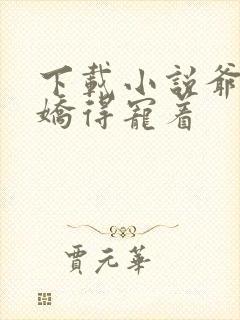 下載小說爺
嬌得寵着
賈元華